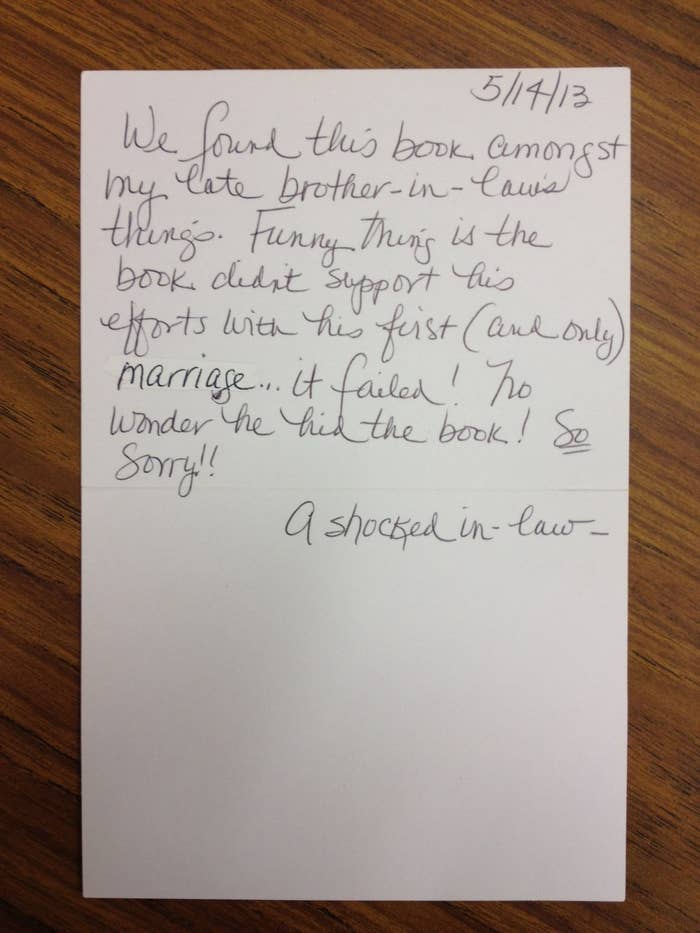 5/14/13
We found this book amongst
my late brother-in-law's
things. Funny thing is the
book didn't support his
efforts with his first (and only)
marriage... it failed! No
wonder he hid the book! So
Sorry!!
A shocked in-law-